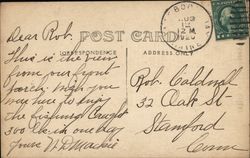 POST CARD
CORRESPONDENCE
ADDRESS ONLY
Dear Rob.
This is the view
from our front
porch. Wish you
may were to enjoy
the fishing! Caught
300 lbs. in one day
Yours
Rob. Caldwell
32 Oak St-
Stamford
Conn
AUG
12 M